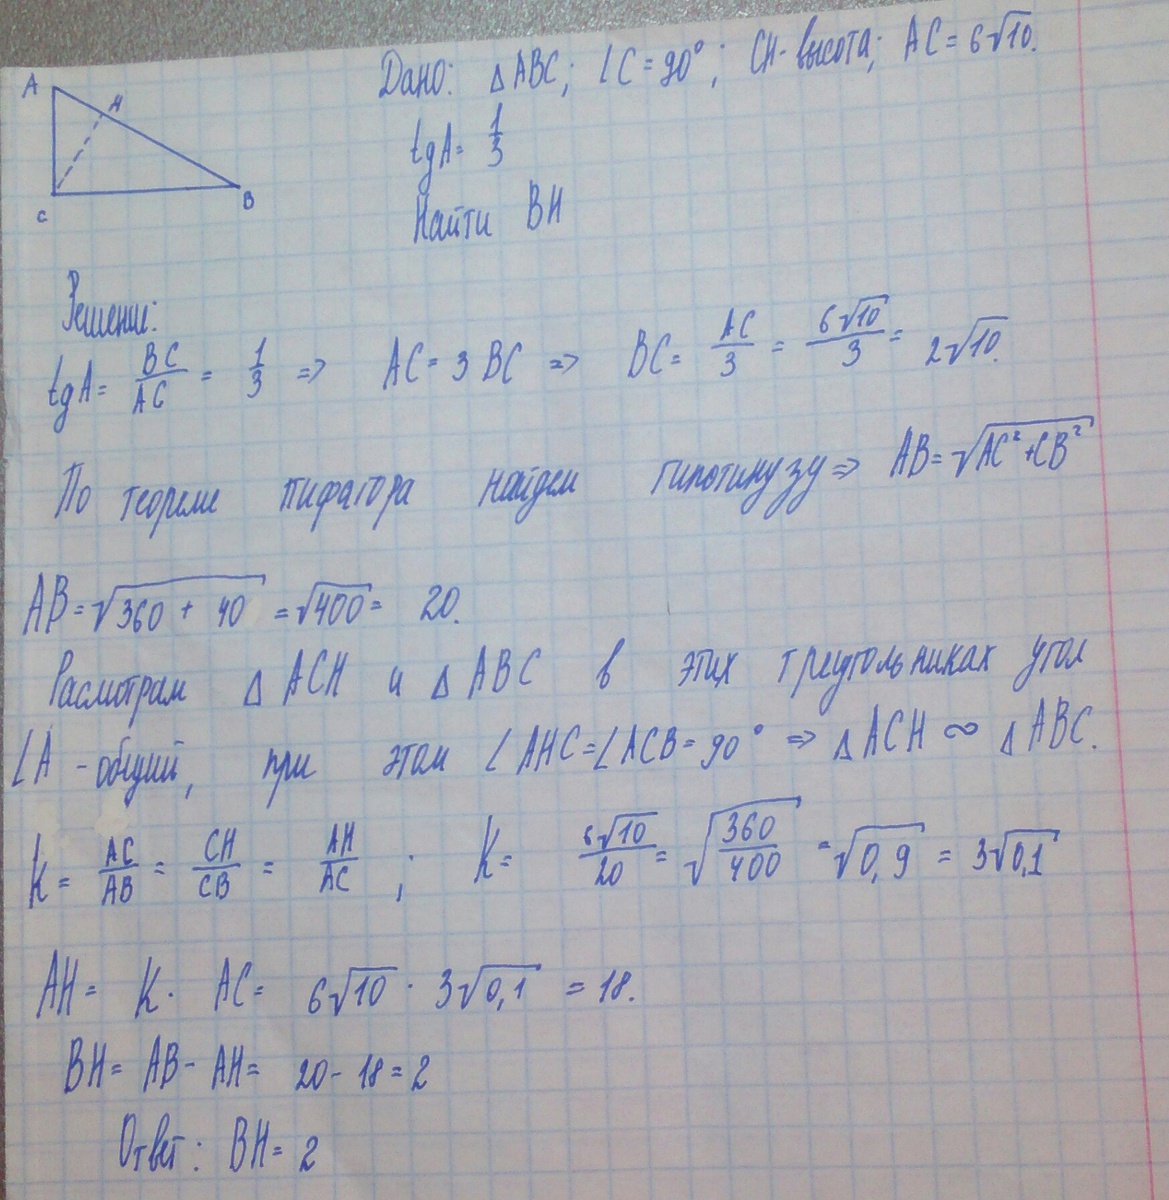 Дано: △ABC; ∠C = 90°; CH - высота; AC = 6√10.
A
H
C
B
tgA = 1/3
Найти BH
Решение:
tgA = BC/AC = 1/3 => AC = 3 BC => BC = AC/3 = 6√10/3 = 2√10.
По теореме пифагора найдем гипотинузу => AB = √(AC² + CB²)
AB = √(360 + 40) = √400 = 20.
Расмотрам △ ACH и △ ABC в этих треугольниках угол
∠A - общий, при этом ∠AHC = ∠ACB = 90° => △ACH ∞ △ABC.
K = AC/AB = CH/CB = AH/AC ; K = 6√10/20 = √(360/400) = √0,9 = 3√0,1
AH = K · AC = 6√10 · 3√0,1 = 18.
BH = AB - AH = 20 - 18 = 2
Ответ: BH = 2